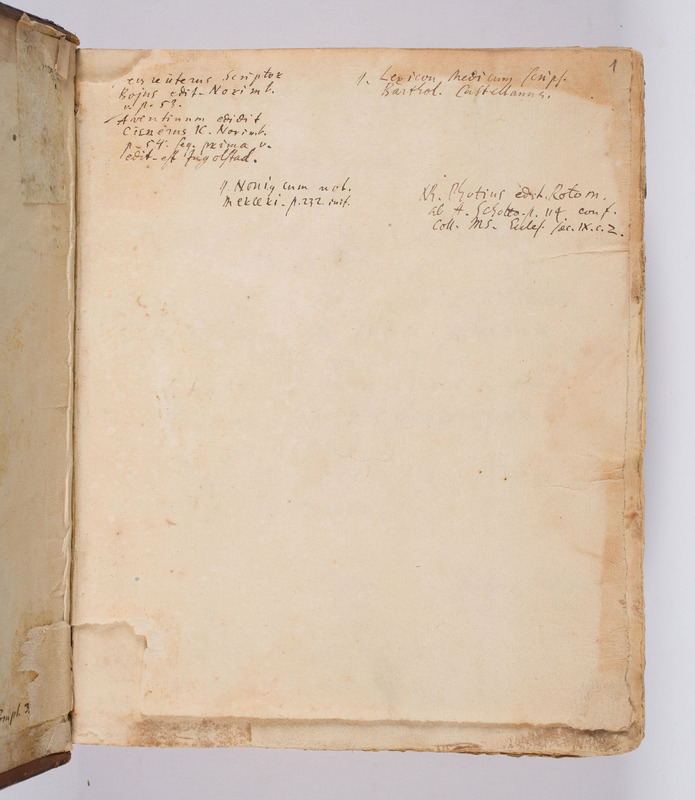 scriptor
Bojus edit. Norimb.
v. p. 53.
Aventinum edidit
Cisnerus IC. Norimb.
p. 54. seq. prima v.
edit. est Ingolstad.
q. Lexicon Medicum scrips.
Barthol. Castellanus.
1
q. Noniq cum not.
Merceri. p. 232. init.
NB. Photius edit. Rotom.
ab A. Schotto. p. 114. conf.
Coll. MS. Eccles. sec. IX. c. 2.